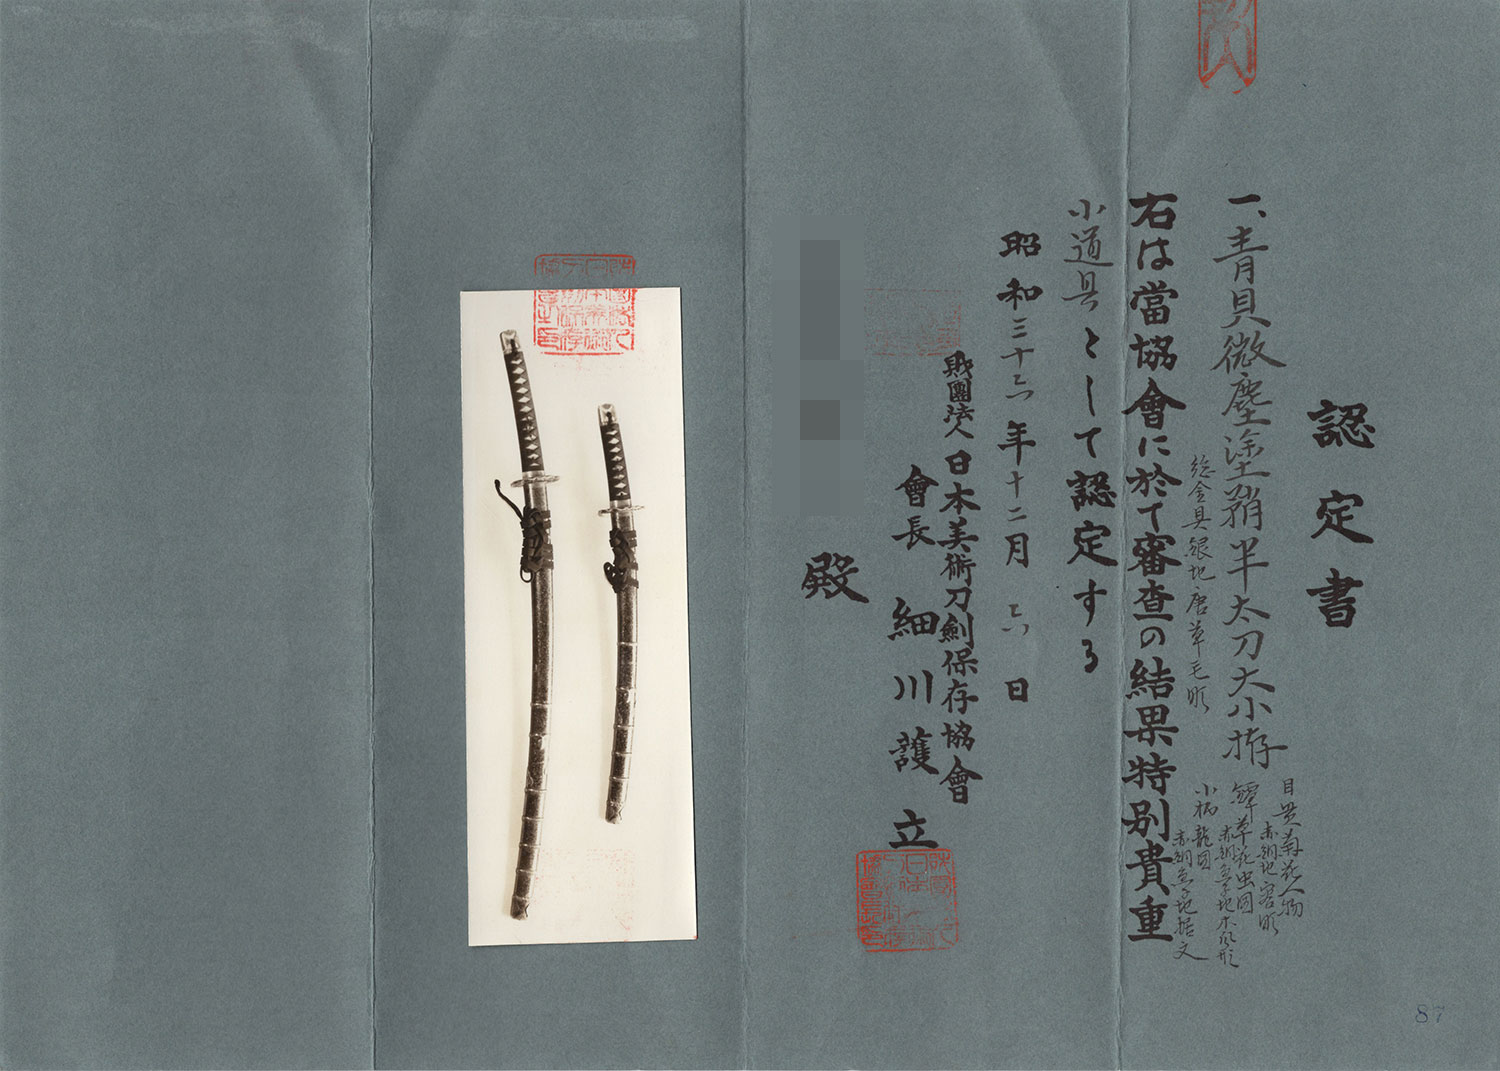 認定書
一、青貝微塵塗鞘半太刀大小拵
総金具銀地唐草毛彫
目貫菊花人物
赤銅地容彫
鐔草花虫図
赤銅魚子地木瓜形
小柄龍図
赤銅魚子地据文
右は當協會に於て審査の結果特別貴重
小道具として認定する
昭和三十六年十二月六日
財團法人日本美術刀劍保存協會
會長細川護立
殿
87